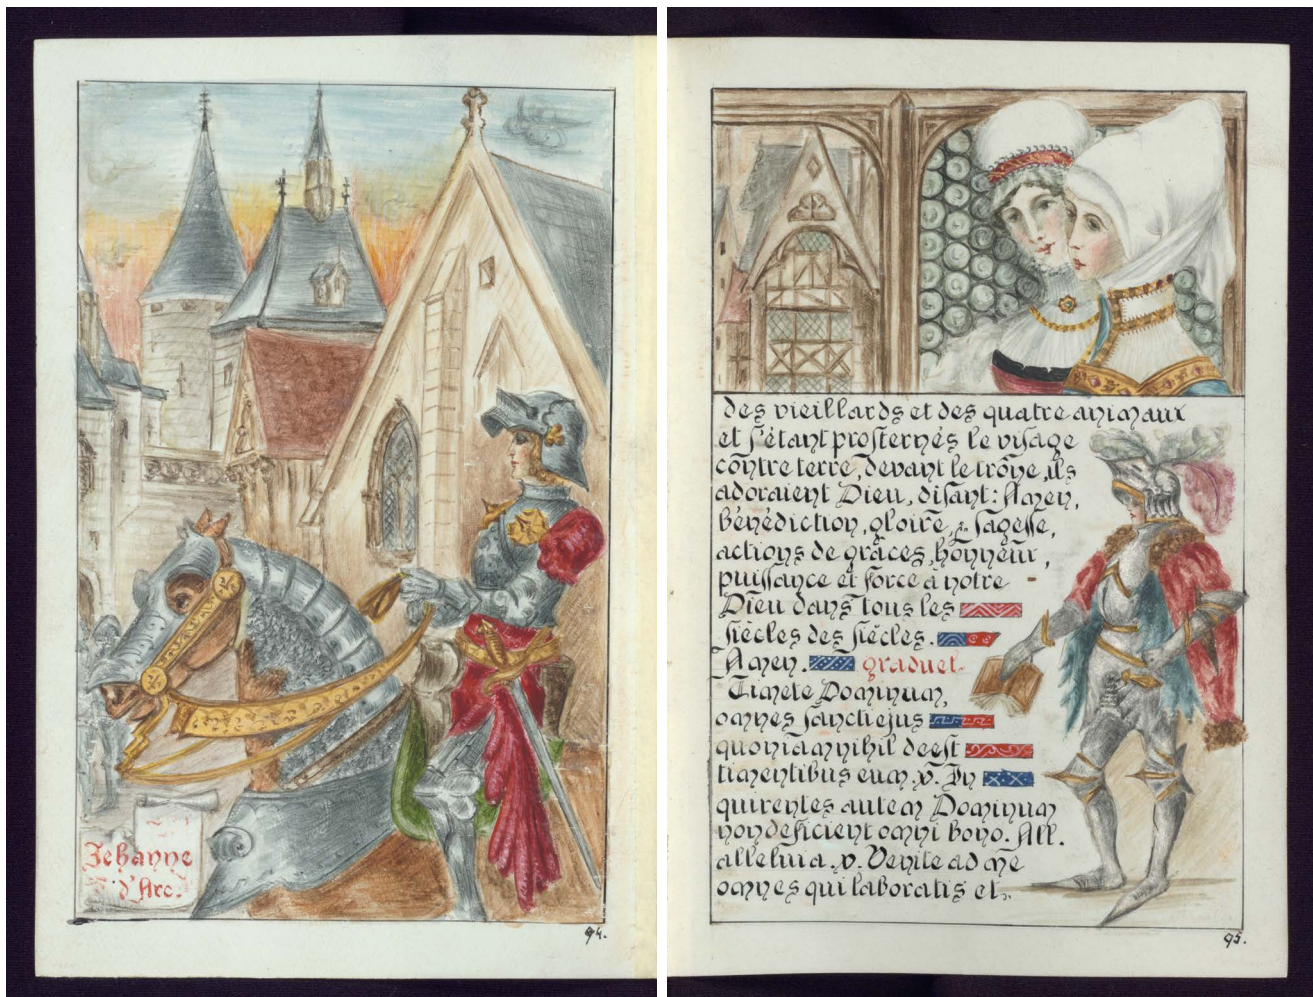 Jehanne
d'Arc.
94.
des vieillards et des quatre animaux
et s'étant prosternés le visage
contre terre, devant le trône, ils
adoraient Dieu, disant: Amen,
Bénédiction, gloire, sagesse,
actions de grâces, honneur,
puissance et force à notre
Dieu dans tous les
siècles des siècles.
Amen. graduel.
Timete Dominum,
omnes sancti ejus
quoniam nihil deest
timentibus eum. v. In
quirentes autem Dominum
non deficient omni bono. All.
alleluia. v. Venite ad me
omnes qui laboratis et.
95.